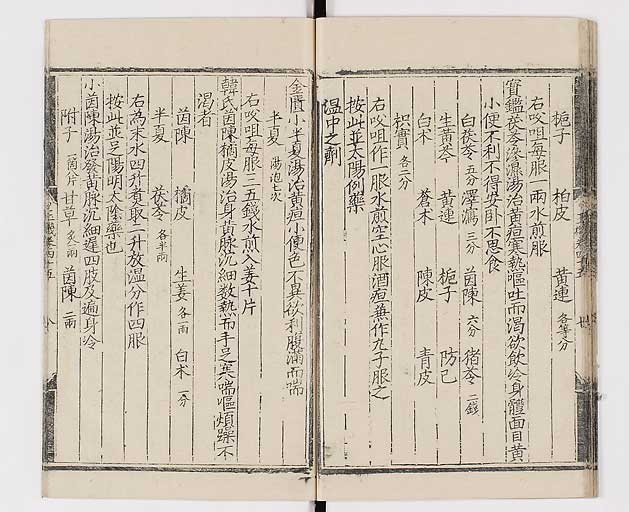 梔子 柏皮 黃連 各等分
右㕮咀每服一兩水煎服
寳鑑茯苓滲濕湯治黃疸寒熱嘔吐而渴欲飲冷身體面目黃
小便不利不得安卧不思食
白茯苓 五分 澤瀉 三分 茵陳 六分 猪苓 二錢
生黃芩 黃連 梔子 防己
白朮 蒼朮 陳皮 青皮
枳實 各二分
右㕮咀作一服水煎空心服酒疸兼作丸子服之
按此並太陽例藥
温中之劑
金匱小半夏湯治黃疸小便色不異欲利腹滿而喘
半夏 湯泡七次
右㕮咀每服三五錢水煎入姜十片
韓氏茵陳橘皮湯治身黃脉沉細数熱而手足寒喘嘔煩躁不
渴者
茵陳 橘皮 生姜 各一兩 白朮 一分
半夏 茯苓 各半兩
右為末水四升煮取二升放温分作四服
按此並足陽明太陰藥也
小茵陳湯治發黃脉沉細遲四肢及遍身冷
附子 一箇片 甘草 炙一兩 茵陳 二兩